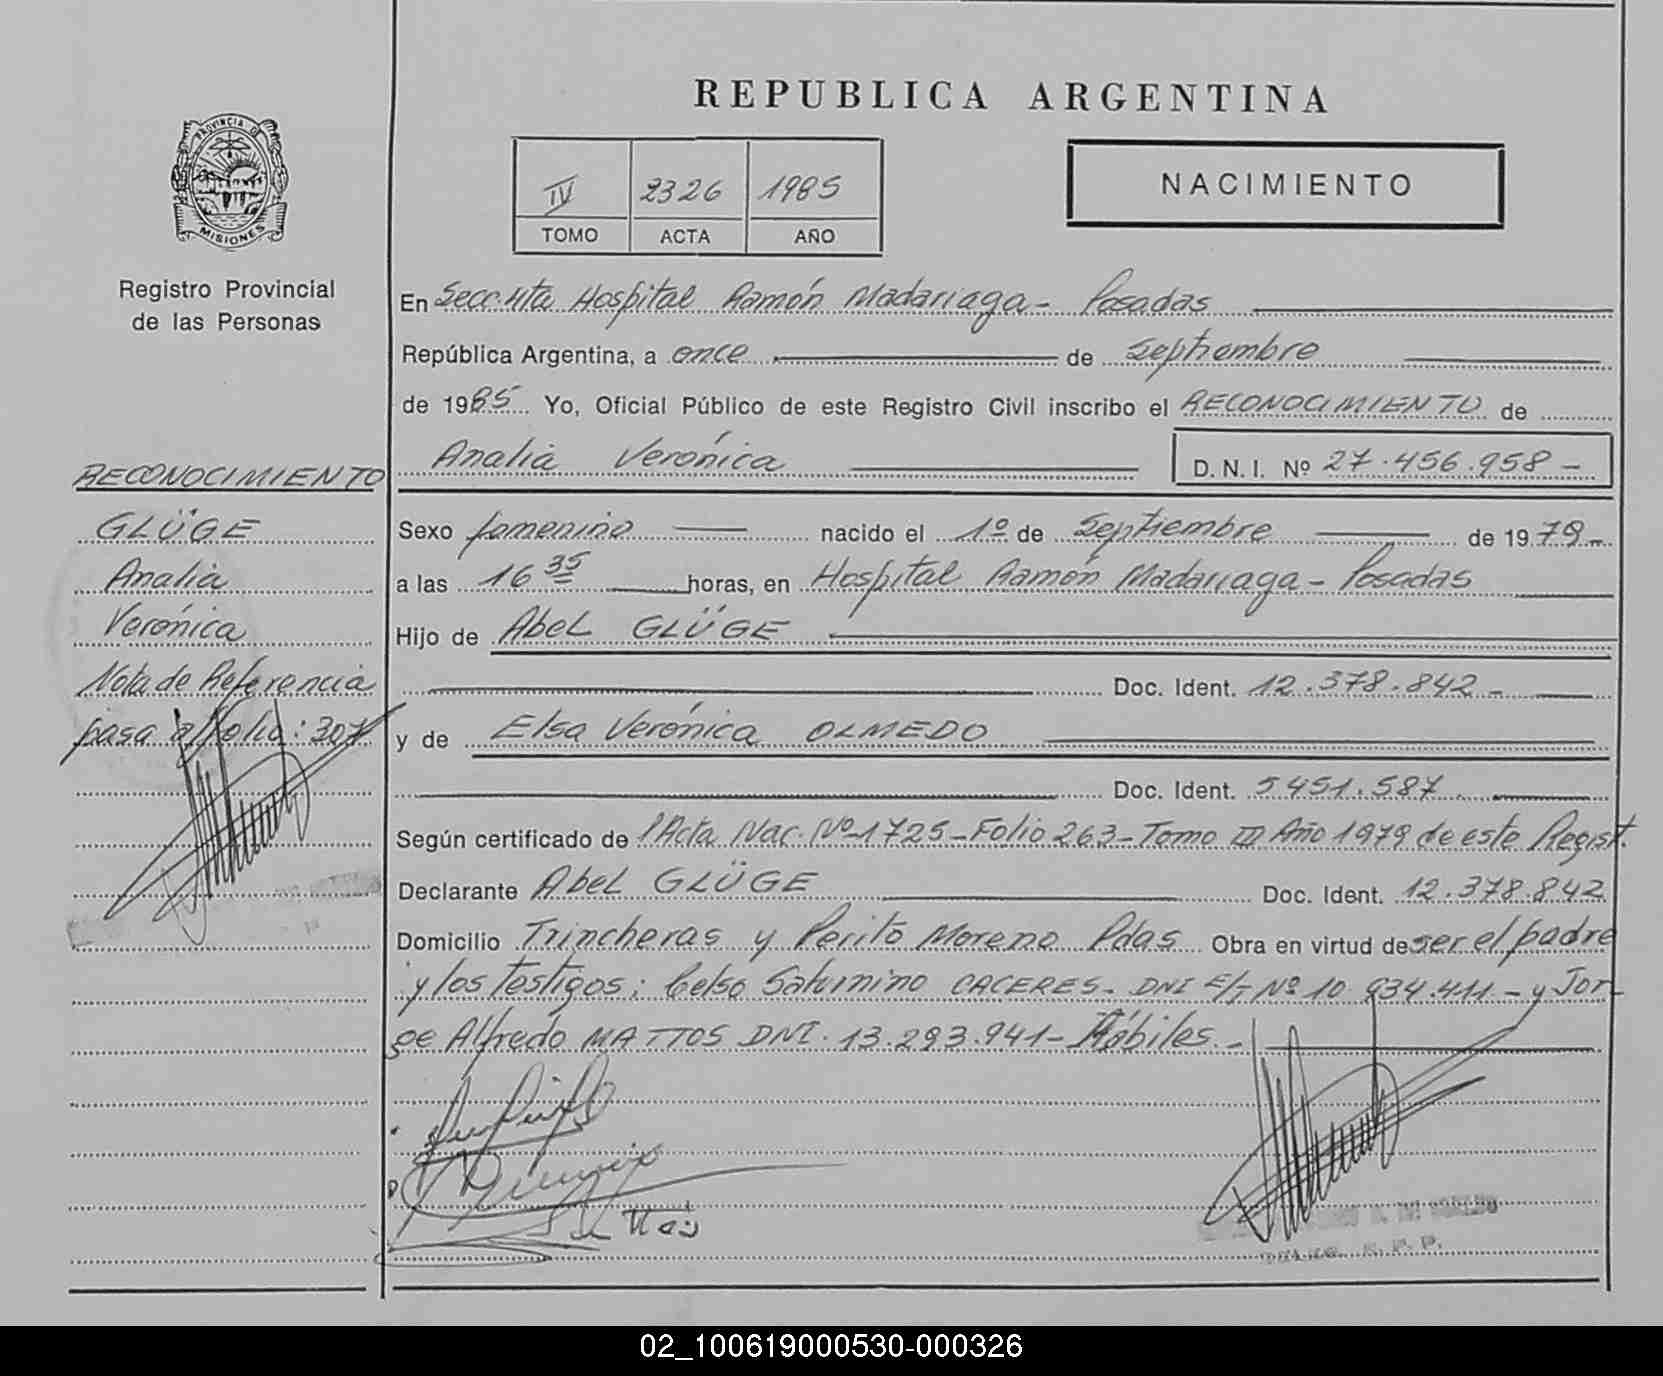 REPUBLICA ARGENTINA
PROVINCIA D
MISIONES
Registro Provincial
de las Personas
IV 2326 1985
TOMO ACTA AÑO
NACIMIENTO
En Secc. 4ta Hospital Ramón Madariaga - Posadas
República Argentina, a once de Septiembre
de 1985 Yo, Oficial Público de este Registro Civil inscribo el RECONOCIMIENTO de
Analia Verónica D. N. I. Nº 27.456.958 -
RECONOCIMIENTO
GLÜGE
Analia
Verónica
Nota de Referencia
pasa a folio: 307
Sexo femenino nacido el 1º de Septiembre de 1979 -
a las 16 35 horas, en Hospital Ramón Madariaga - Posadas
Hijo de Abel GLÜGE
Doc. Ident. 12.378.842 -
y de Elsa Verónica OLMEDO
Doc. Ident. 5451.587
Según certificado de Acta Nac. Nº 1725 - Folio 263 - Tomo III Año 1979 de este Regist.
Declarante Abel GLÜGE Doc. Ident. 12.378.842
Domicilio Trincheras y Perito Moreno Pdas Obra en virtud de ser el padre
y los testigos: Celso Saturnino CACERES - DNI E/T Nº 10 934.411 - y Jor-
ge Alfredo MATTOS DNI. 13.293.941 - Hábiles. -
02_100619000530-000326